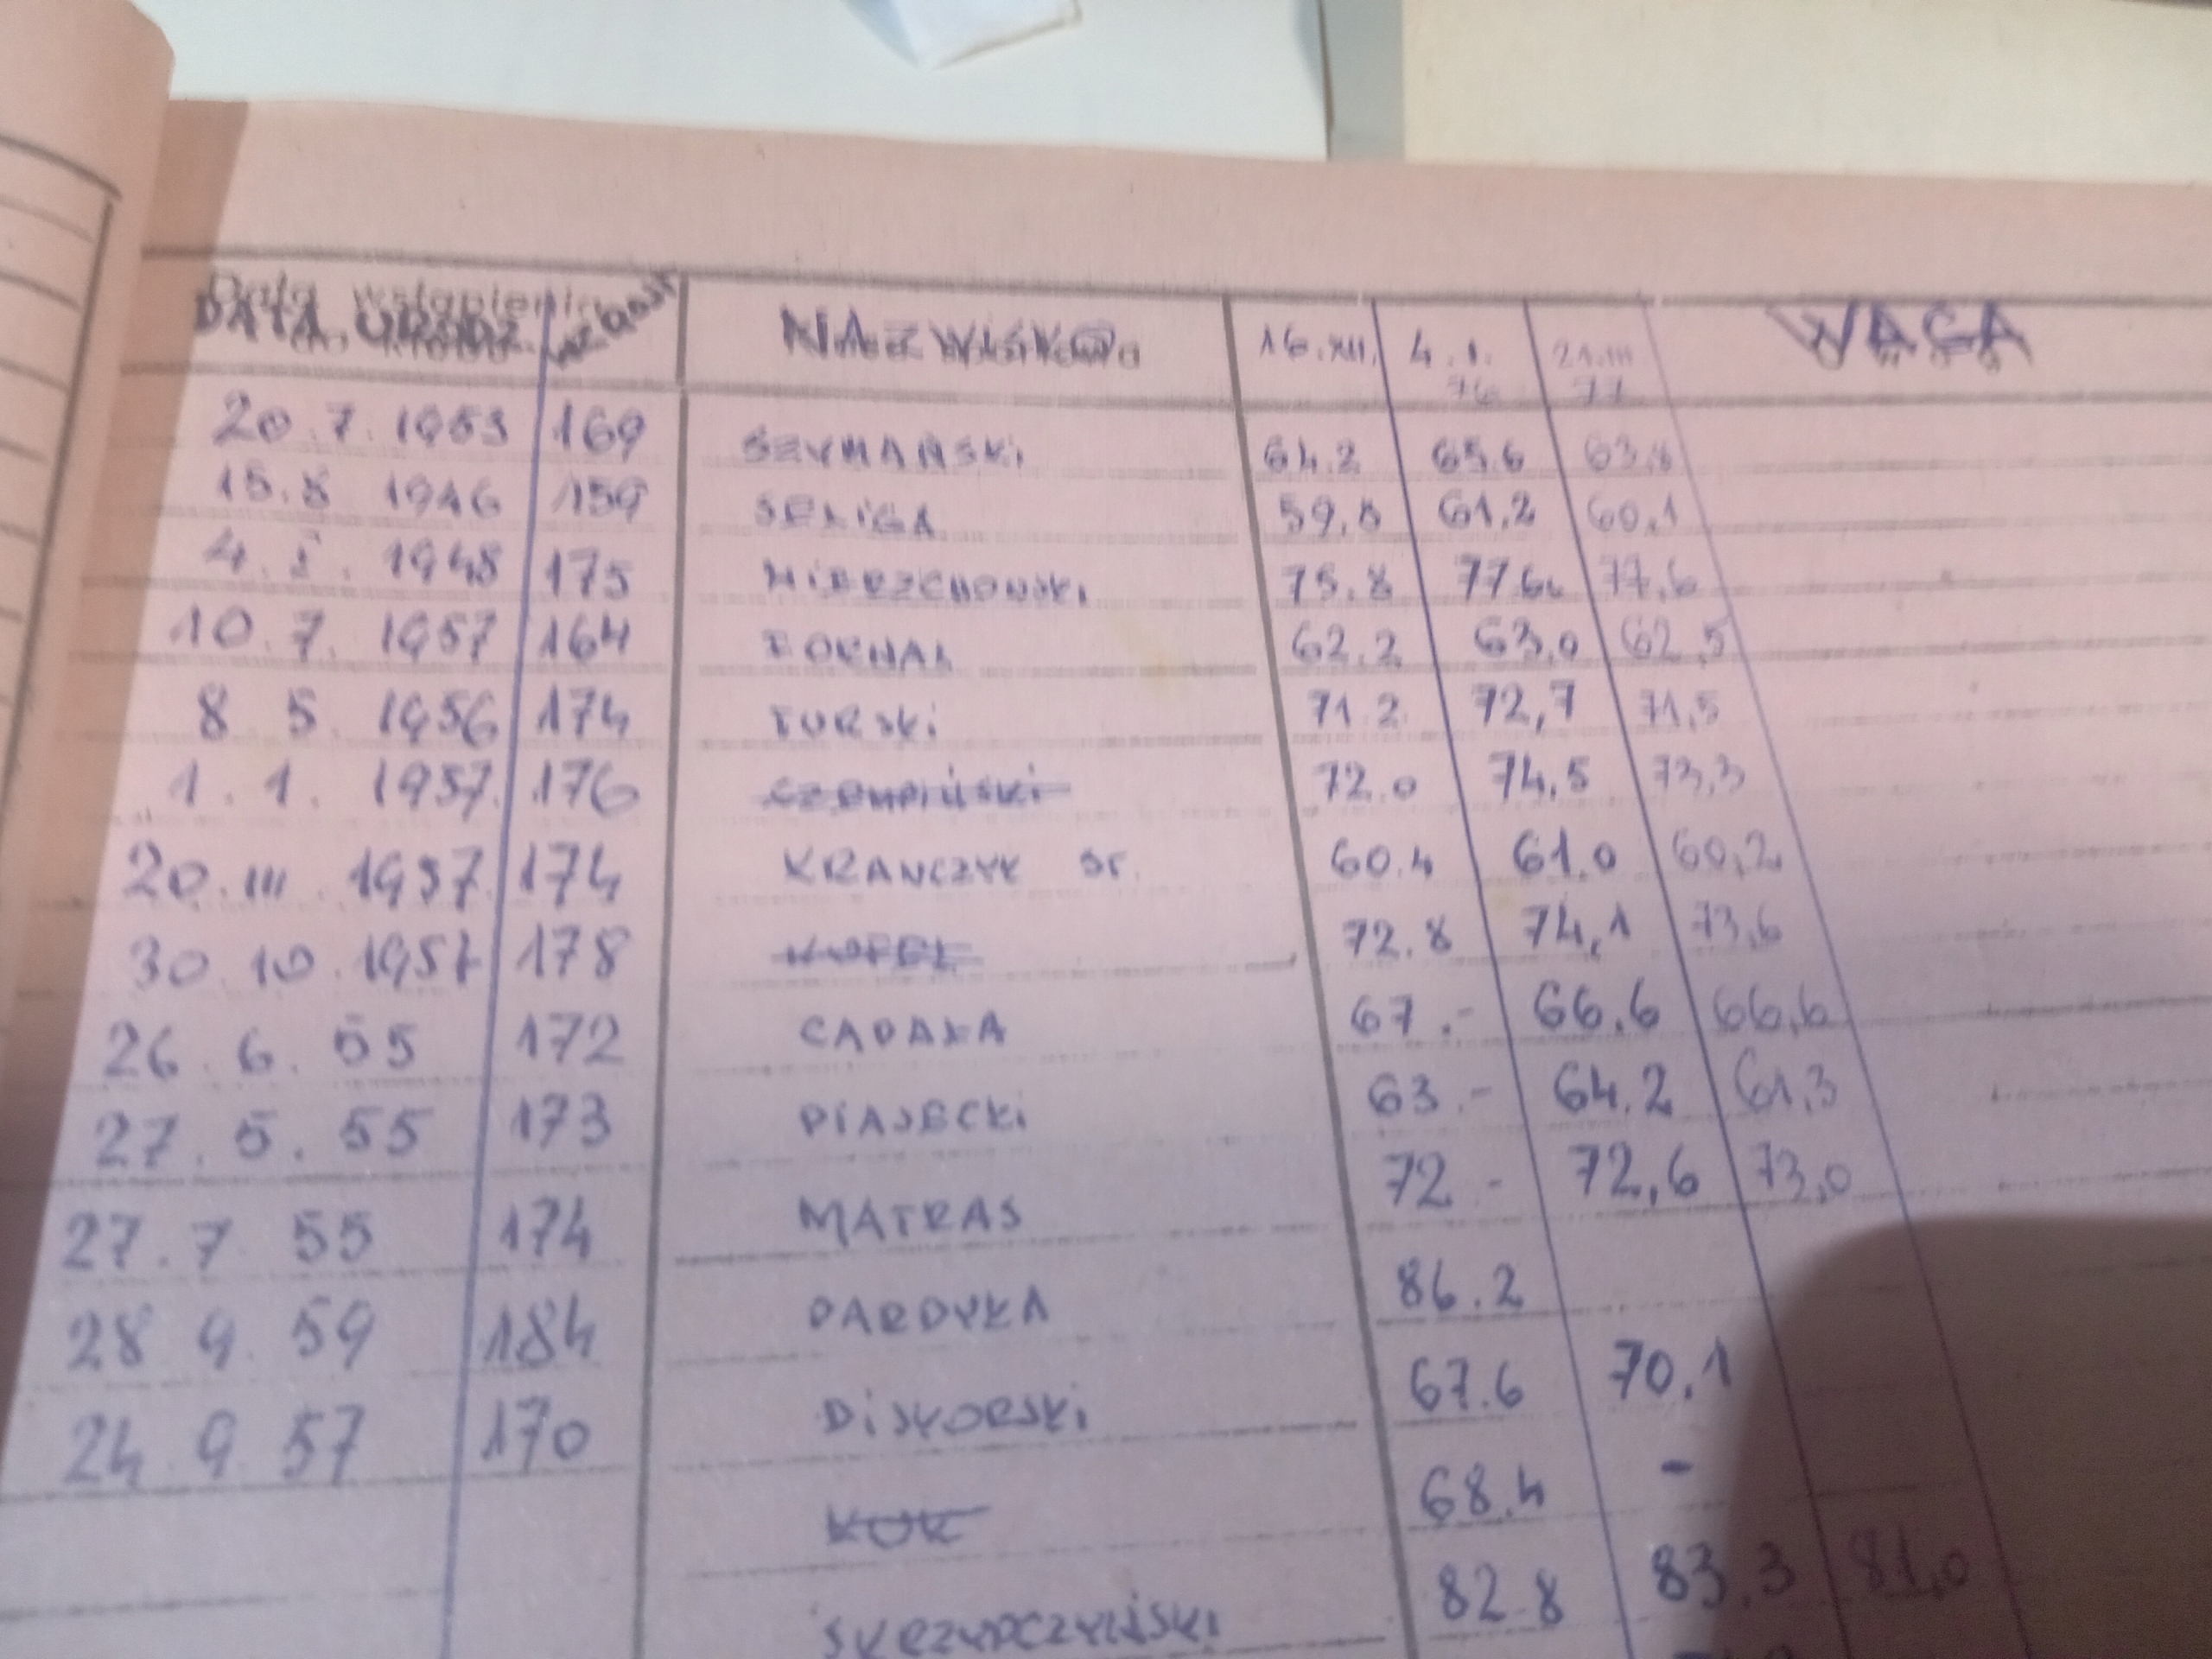 DATA URODZ. WZROST NAZWISKO 16.XII. 4.I.76 21.III 77 WAGA
20.7.1953 169 SZYMAŃSKI 64.2 65.6 63,8
15.8 1946 159 SELIGA 59,8 61,2 60,1
4.I. 1948 175 75.8 77,6 77,6
10.7.1957 164 FORNAL 62.2 63,0 62,5
8 5. 1956 174 TURSKI 71.2 72,7 71,5
1.1.1957 176 72.0 74,5 73,3
20.III.1957 174 KRAWCZYK ST. 60.4 61,0 60,2
30.10.1957 178 72.8 74,1 73,6
26.6.55 172 CADAŁA 67.- 66.6 66,6
27.5.55 173 PIASECKI 63.- 64.2 61,3
27.7 55 174 MATRAS 72 - 72,6 73,0
28 9. 59 184 PARDYKA 86.2
24 9 57 170 DISKORSKI 67.6 70.1
KUK 68.4 -
SKRZYPCZYŃSKI 82.8 83.3 81,0